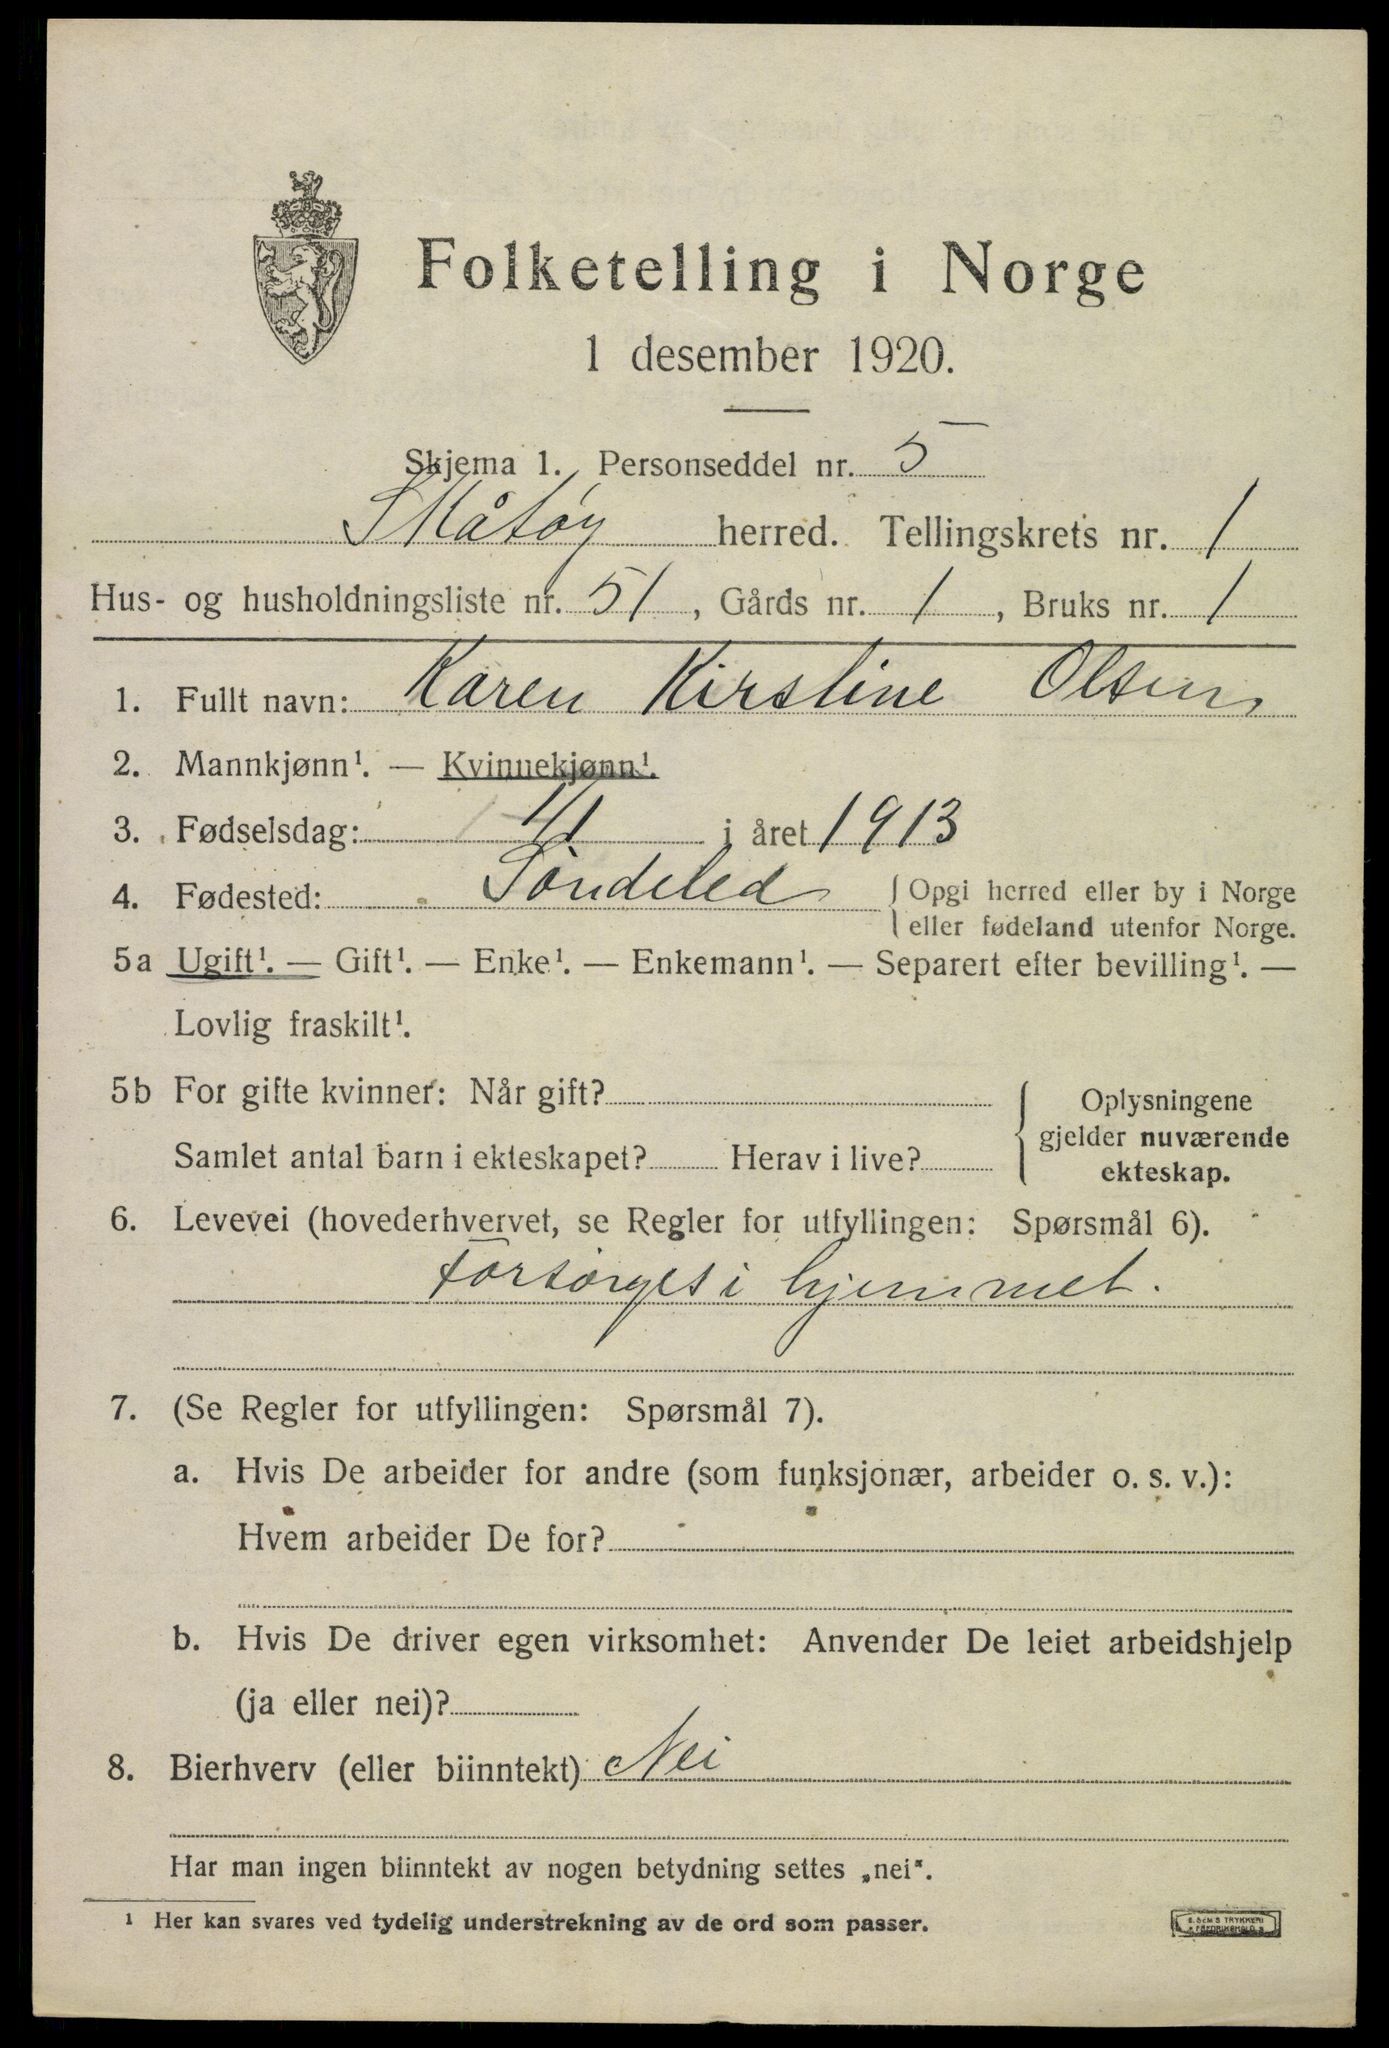 Folketelling i Norge
1 desember 1920.
Skjema 1. Personseddel nr. 5
Skåtøy herred. Tellingskrets nr. 1
Hus- og husholdningsliste nr. 51, Gårds nr. 1, Bruks nr. 1
1. Fullt navn: Karen Kirstine Olsen
2. Mannkjønn¹. — Kvinnekjønn¹.
3. Fødselsdag: i året 1913
4. Fødested: Söndeled { Opgi herred eller by i Norge
eller fødeland utenfor Norge.
5a Ugift¹. — Gift¹. — Enke¹. — Enkemann¹. — Separert efter bevilling¹. —
Lovlig fraskilt¹.
5b For gifte kvinner: Når gift? { Oplysningene
gjelder nuværende
Samlet antal barn i ekteskapet? Herav i live?
ekteskap.
6. Levevei (hovederhvervet, se Regler for utfyllingen: Spørsmål 6).
Forsörges i hjemmet.
7. (Se Regler for utfyllingen: Spørsmål 7).
a. Hvis De arbeider for andre (som funksjonær, arbeider o. s. v.):
Hvem arbeider De for?
b. Hvis De driver egen virksomhet: Anvender De leiet arbeidshjelp
(ja eller nei)?
8. Bierhverv (eller biinntekt) Nei
Har man ingen biinntekt av nogen betydning settes „nei".
¹ Her kan svares ved tydelig understrekning av de ord som passer.